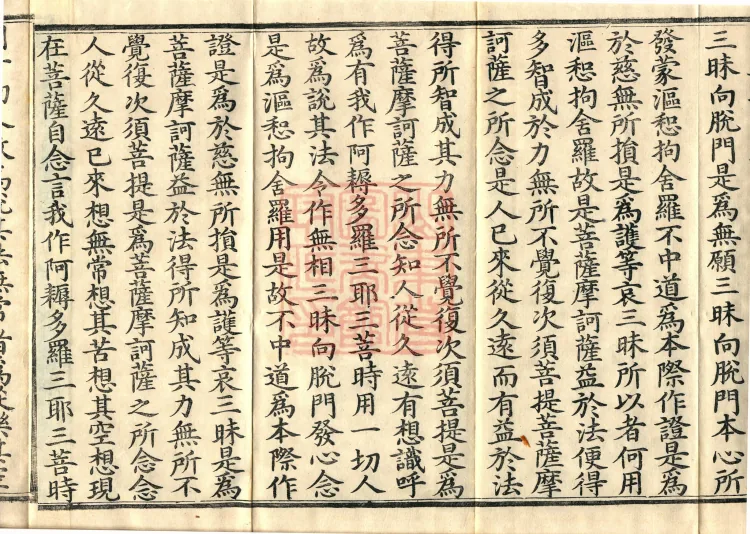 三昧向脫門是爲無願三昧向脫門本心所
發蒙漚惒拘舍羅不中道爲本際作證是爲
於慈無所損是爲護等哀三昧所以者何用
漚惒拘舍羅故是菩薩摩訶薩益於法便得
多智成於力無所不覺復次須菩提菩薩摩
訶薩之所念是人已來從久遠而有益於法
得所智成其力無所不覺復次須菩提是爲
菩薩摩訶薩之所念知人從久遠有想識呼
爲有我作阿耨多羅三耶三菩時用一切人
故爲說其法令作無相三昧向脫門發心念
是爲漚惒拘舍羅用是故不中道爲本際作
證是爲於慈無所損是爲護等哀三昧是爲
菩薩摩訶薩益於法得所知成其力無所不
覺復次須菩提是爲菩薩摩訶薩之所念念
人從久遠已來想無常想其苦想其空想現
在菩薩自念言我作阿耨多羅三耶三菩時